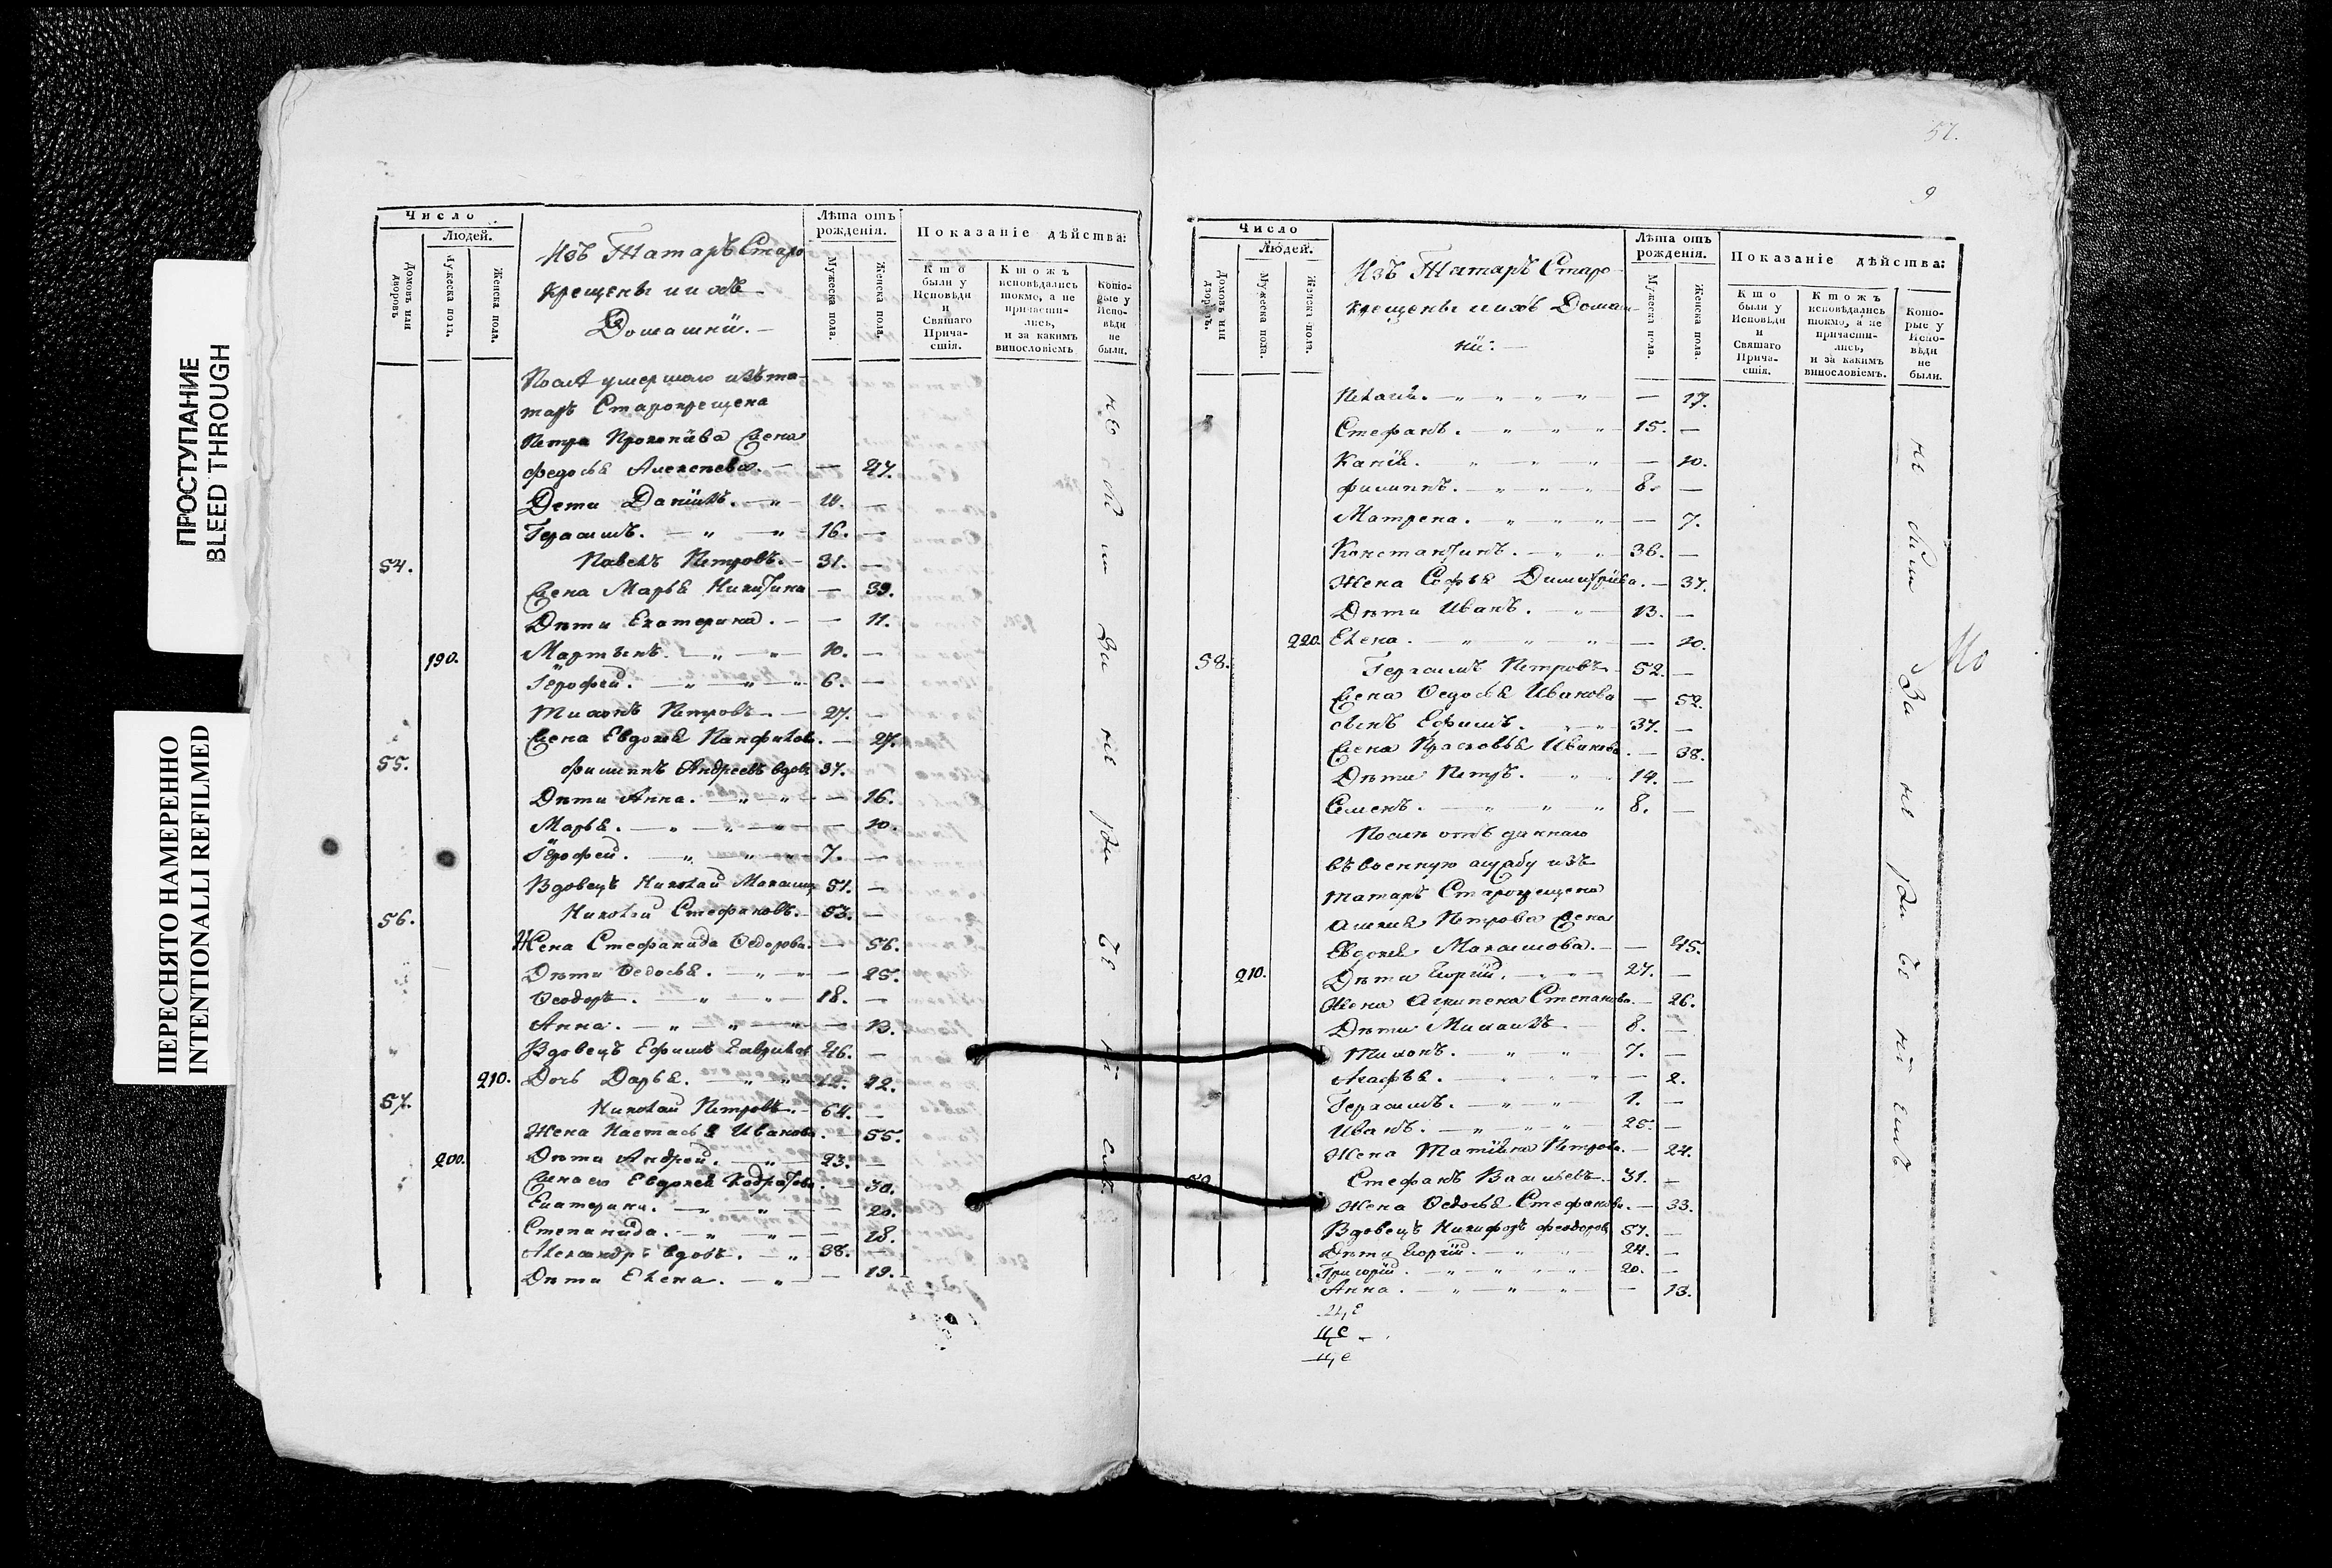 ПРОСТУПАНИЕ
BLEED THROUGH
ПЕРЕСНЯТО НАМЕРЕННО
INTENTIONALLI REFILMED
Число
Людей.
Домовъ или дворовъ
Мужеска пола.
Женска пола.
Изъ Татаръ Старо
крещены и ихъ
Домашнїи.
Лѣта отъ рожденїя.
Мужеска пола.
Женска пола.
Показанїе дѣйства:
Кто были у Исповѣди и Святаго Причастїя.
Ктожъ исповѣдались токмо, а не причастились, и за какимъ винословїемъ
Которые у Исповѣди не были.
умершаго изъ та-
таръ Старокрещена
Петра Прокопїева Жена
Федосья Алексеева. — — 47.
Дети Данїилъ. — „ — —
Герасимъ. — „ — „ 16. —
54. Павелъ Петровъ. — 31. —
Жена Марья Никитина — 39.
Дѣти Екатерина. — — 11.
190. Мартынъ. — „ — „ 10. —
Їерофей. — „ — „ — „ 6. —
Петровъ. — 27. —
Жена Евдокея Панфилов. — 27.
55. Филиппъ Андреевъ вдовъ 37.
Дѣти Анна. — „ — „ — 16.
Марья. — „ — „ — — 10.
Їерофей. — „ — „ — „ 7. —
Вдовецъ Николай 51. —
56. Николай Стефановъ. — 53. —
Жена Стефанида Ѳедорова. — 56.
Дѣти Ѳедосья. — „ — „ — 25.
Ѳеодоръ. — „ — „ — 18. —
Анна. — „ — „ — „ — 13.
Вдовецъ Ефимъ 46. —
210. Дочь Дарья. — „ — „ 12.
57. Николай Петровъ. — 64. —
Жена Настасья Иванова. — 55.
200. Дѣти Андрей. — „ — 23. —
Жена его Евдокея — 30.
Екатерина. — „ — „ — — 20.
Степанида. — „ — „ — — 18.
Александръ вдовъ. — „ 38. —
Дѣти Елена. — „ — — 19.
57.
9
Число
Людей.
Домовъ или дворовъ.
Мужеска пола.
Женска пола.
Изъ Татаръ Старо
крещены и ихъ Домаш-
нїи: —
Лѣта отъ рожденїя.
Мужеска пола.
Женска пола.
Показанїе дѣйства:
Кто были у Исповѣди и Святаго Причастїя.
Ктожъ исповѣдались токмо, а не причастились, и за какимъ винословїемъ.
Которые у Исповѣди не были.
— „ „ „ „ — 17.
Стефанъ. — „ „ „ 15. —
„ — „ — „ — 10.
Филиппъ. — „ — „ „ 8. —
Матрена. „ — „ — „ — 7.
Константинъ. — „ „ 36. —
Жена Софья Димитрїева. — 37.
Дѣти Иванъ. — „ — 13. —
220. Елена. — „ — „ — „ — 10.
58. Герасимъ Петровъ 52. —
Жена Ѳедосья Иванова — 52.
сынъ Ефимъ. „ „ 37. —
Жена Прасковья Иванова. — 38.
Дѣти Петръ. „ 14. —
Семенъ. — „ „ „ 8. —
Послѣ отъ даннаго
въ военную службу изъ
татаръ Старокрещена
Петрова Жена
Евдокея Максимова. — — 45.
210. Дѣти Георгїй. — „ — 27. —
Жена Агрипена Степанова. — 26.
Дѣти Михаилъ 8. —
„ „ 7. —
Агафья. — „ — „ — 2.
Герасимъ. — „ „ — 1. —
Иванъ. — „ — „ „ 25. —
Жена Татїана Петрова. — 24.
Стефанъ Васильевъ. 31. —
Жена Ѳедосья Стефанова. — 33.
Вдовецъ Никифоръ Феодоров 57. —
Дѣти Георгїй. — „ „ 24. —
Григорїй. — „ „ „ „ 20. —
Анна. — „ — „ — „ — 13.